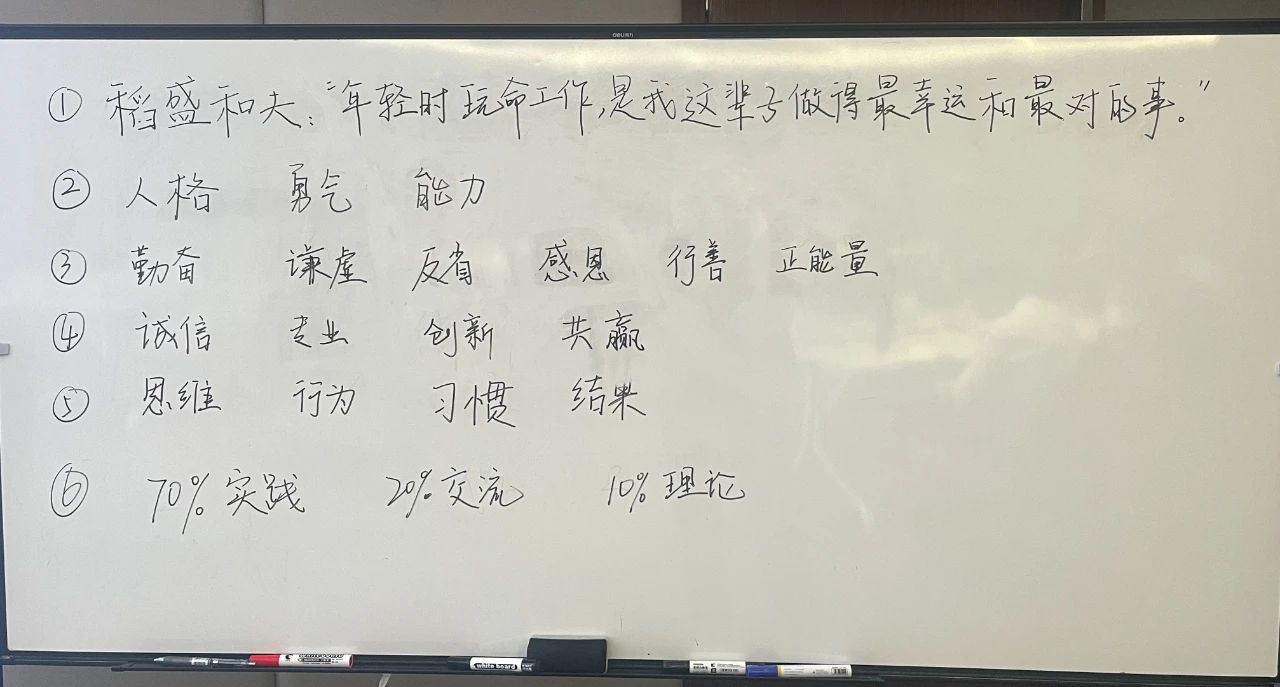 deli得力
① 稻盛和夫："年轻时玩命工作,是我这辈子做得最幸运和最对的事。"
② 人格 勇气 能力
③ 勤奋 谦虚 反省 感恩 行善 正能量
④ 诚信 专业 创新 共赢
⑤ 思维 行为 习惯 结果
⑥ 70%实践 20%交流 10%理论
white board